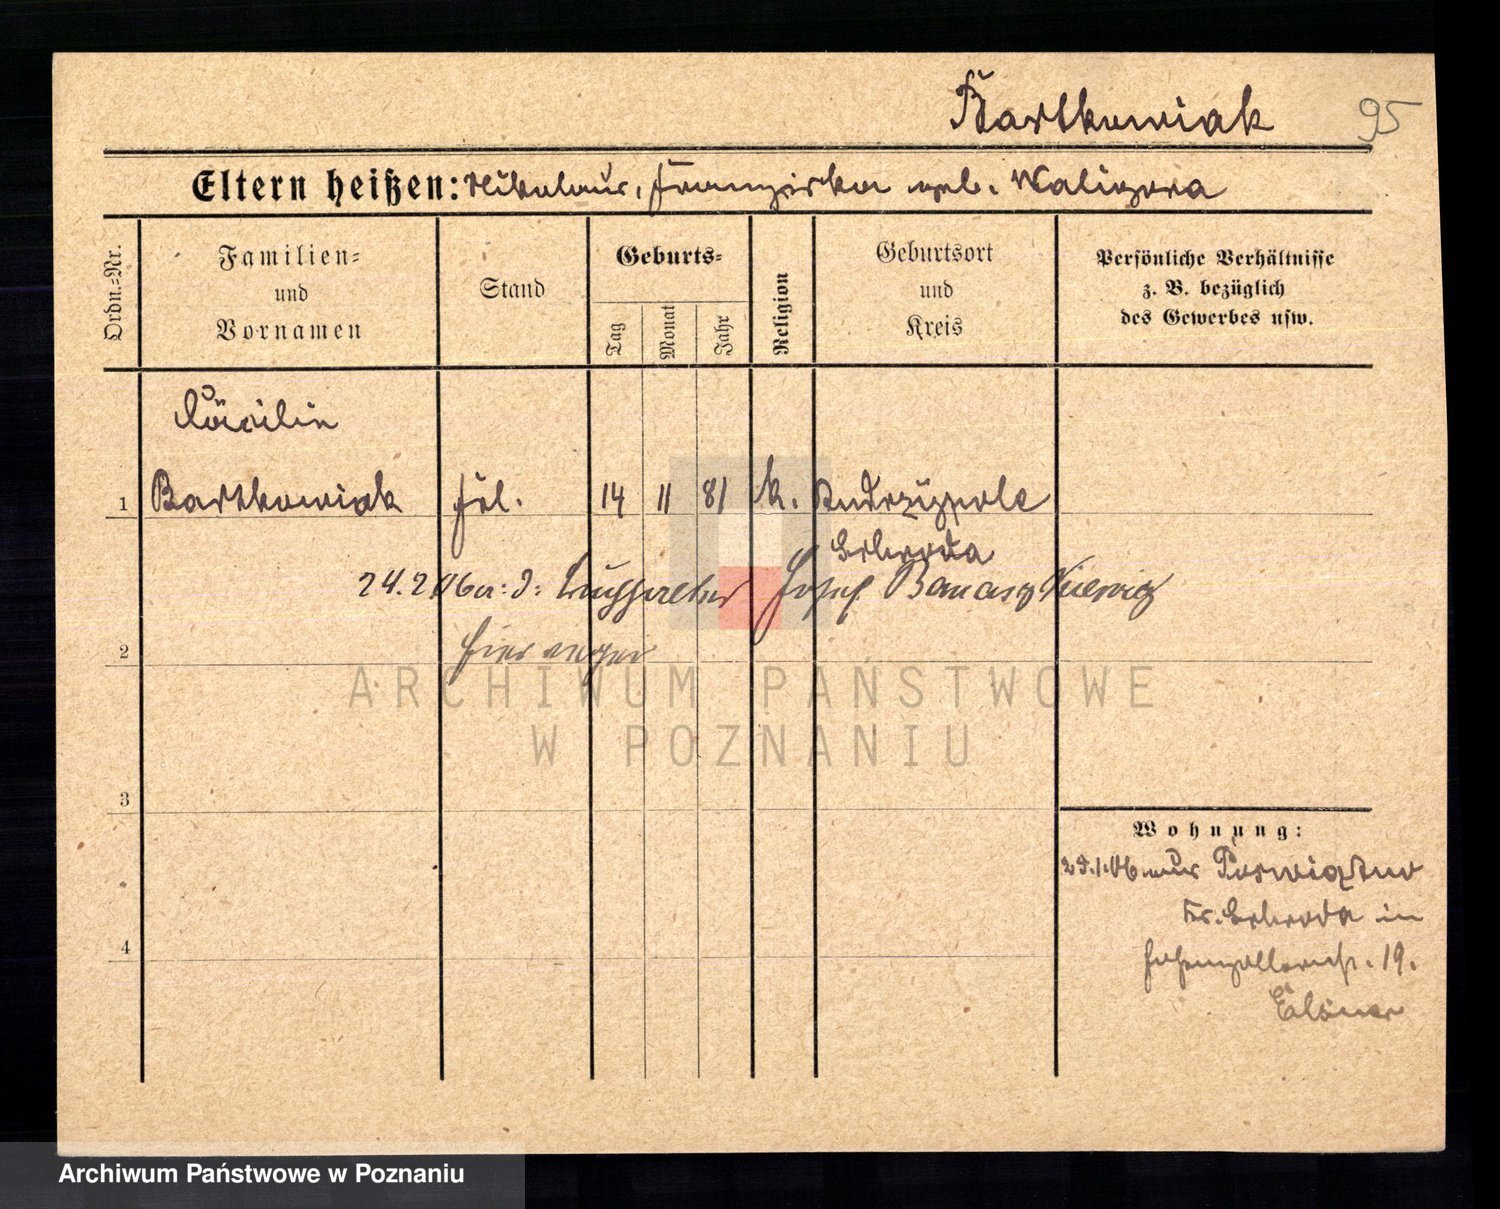 Bartkowiak 95
Eltern heißen: Nikolaus, Franziska geb. Waligora
Ordn.=Nr.
Familien=
und
Vornamen
Stand
Geburts=
Tag
Monat
Jahr
Religion
Geburtsort
und
Kreis
Persönliche Verhältnisse
z. B. bezüglich
des Gewerbes usw.
Cäcilie
1 Bartkowiak frl. 14 11 81 k.
Schroda
24.2.06 a: d: Buchhalter Josef
hier
2
ARCHIWUM PAŃSTWOWE
W POZNANIU
3
Wohnung:
.1.06 aus
Kr. Schroda in
Hohenzollernstr. 19.
4
Elsner
Archiwum Państwowe w Poznaniu